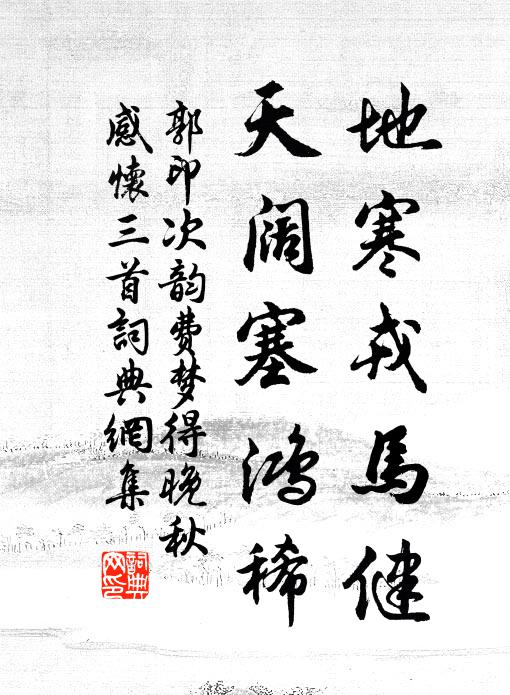 地寒戎馬健
天阔塞鴻稀
郭印次韵費梦得晚秋
感懷三首詞典網集
詞典網印